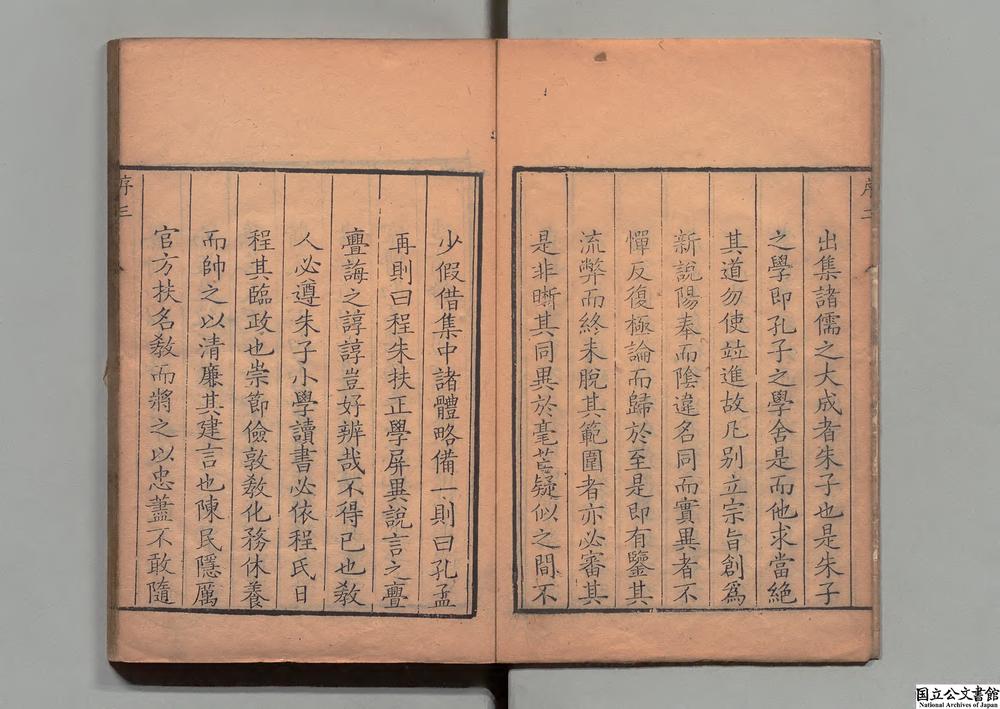 序二
出集諸儒之大成者朱子也是朱子
之學即孔子之學舍是而他求當絶
其道勿使竝進故凡别立宗旨創爲
新說陽奉而陰違名同而實異者不
憚反復極論而歸於至是即有鑒其
流弊而終未脫其範圍者亦必審其
是非晰其同異於毫芒疑似之間不
少假借集中諸體略備一則曰孔孟
再則曰程朱扶正學屏異說言之亹
亹誨之諄諄豈好辨哉不得已也敎
人必遵朱子小學讀書必依程氏日
程其臨政也崇節儉敦敎化務休養
而帥之以清廉其建言也陳民隱厲
官方扶名敎而將之以忠藎不敢隨
序三
国立公文書館
National Archives of Japan